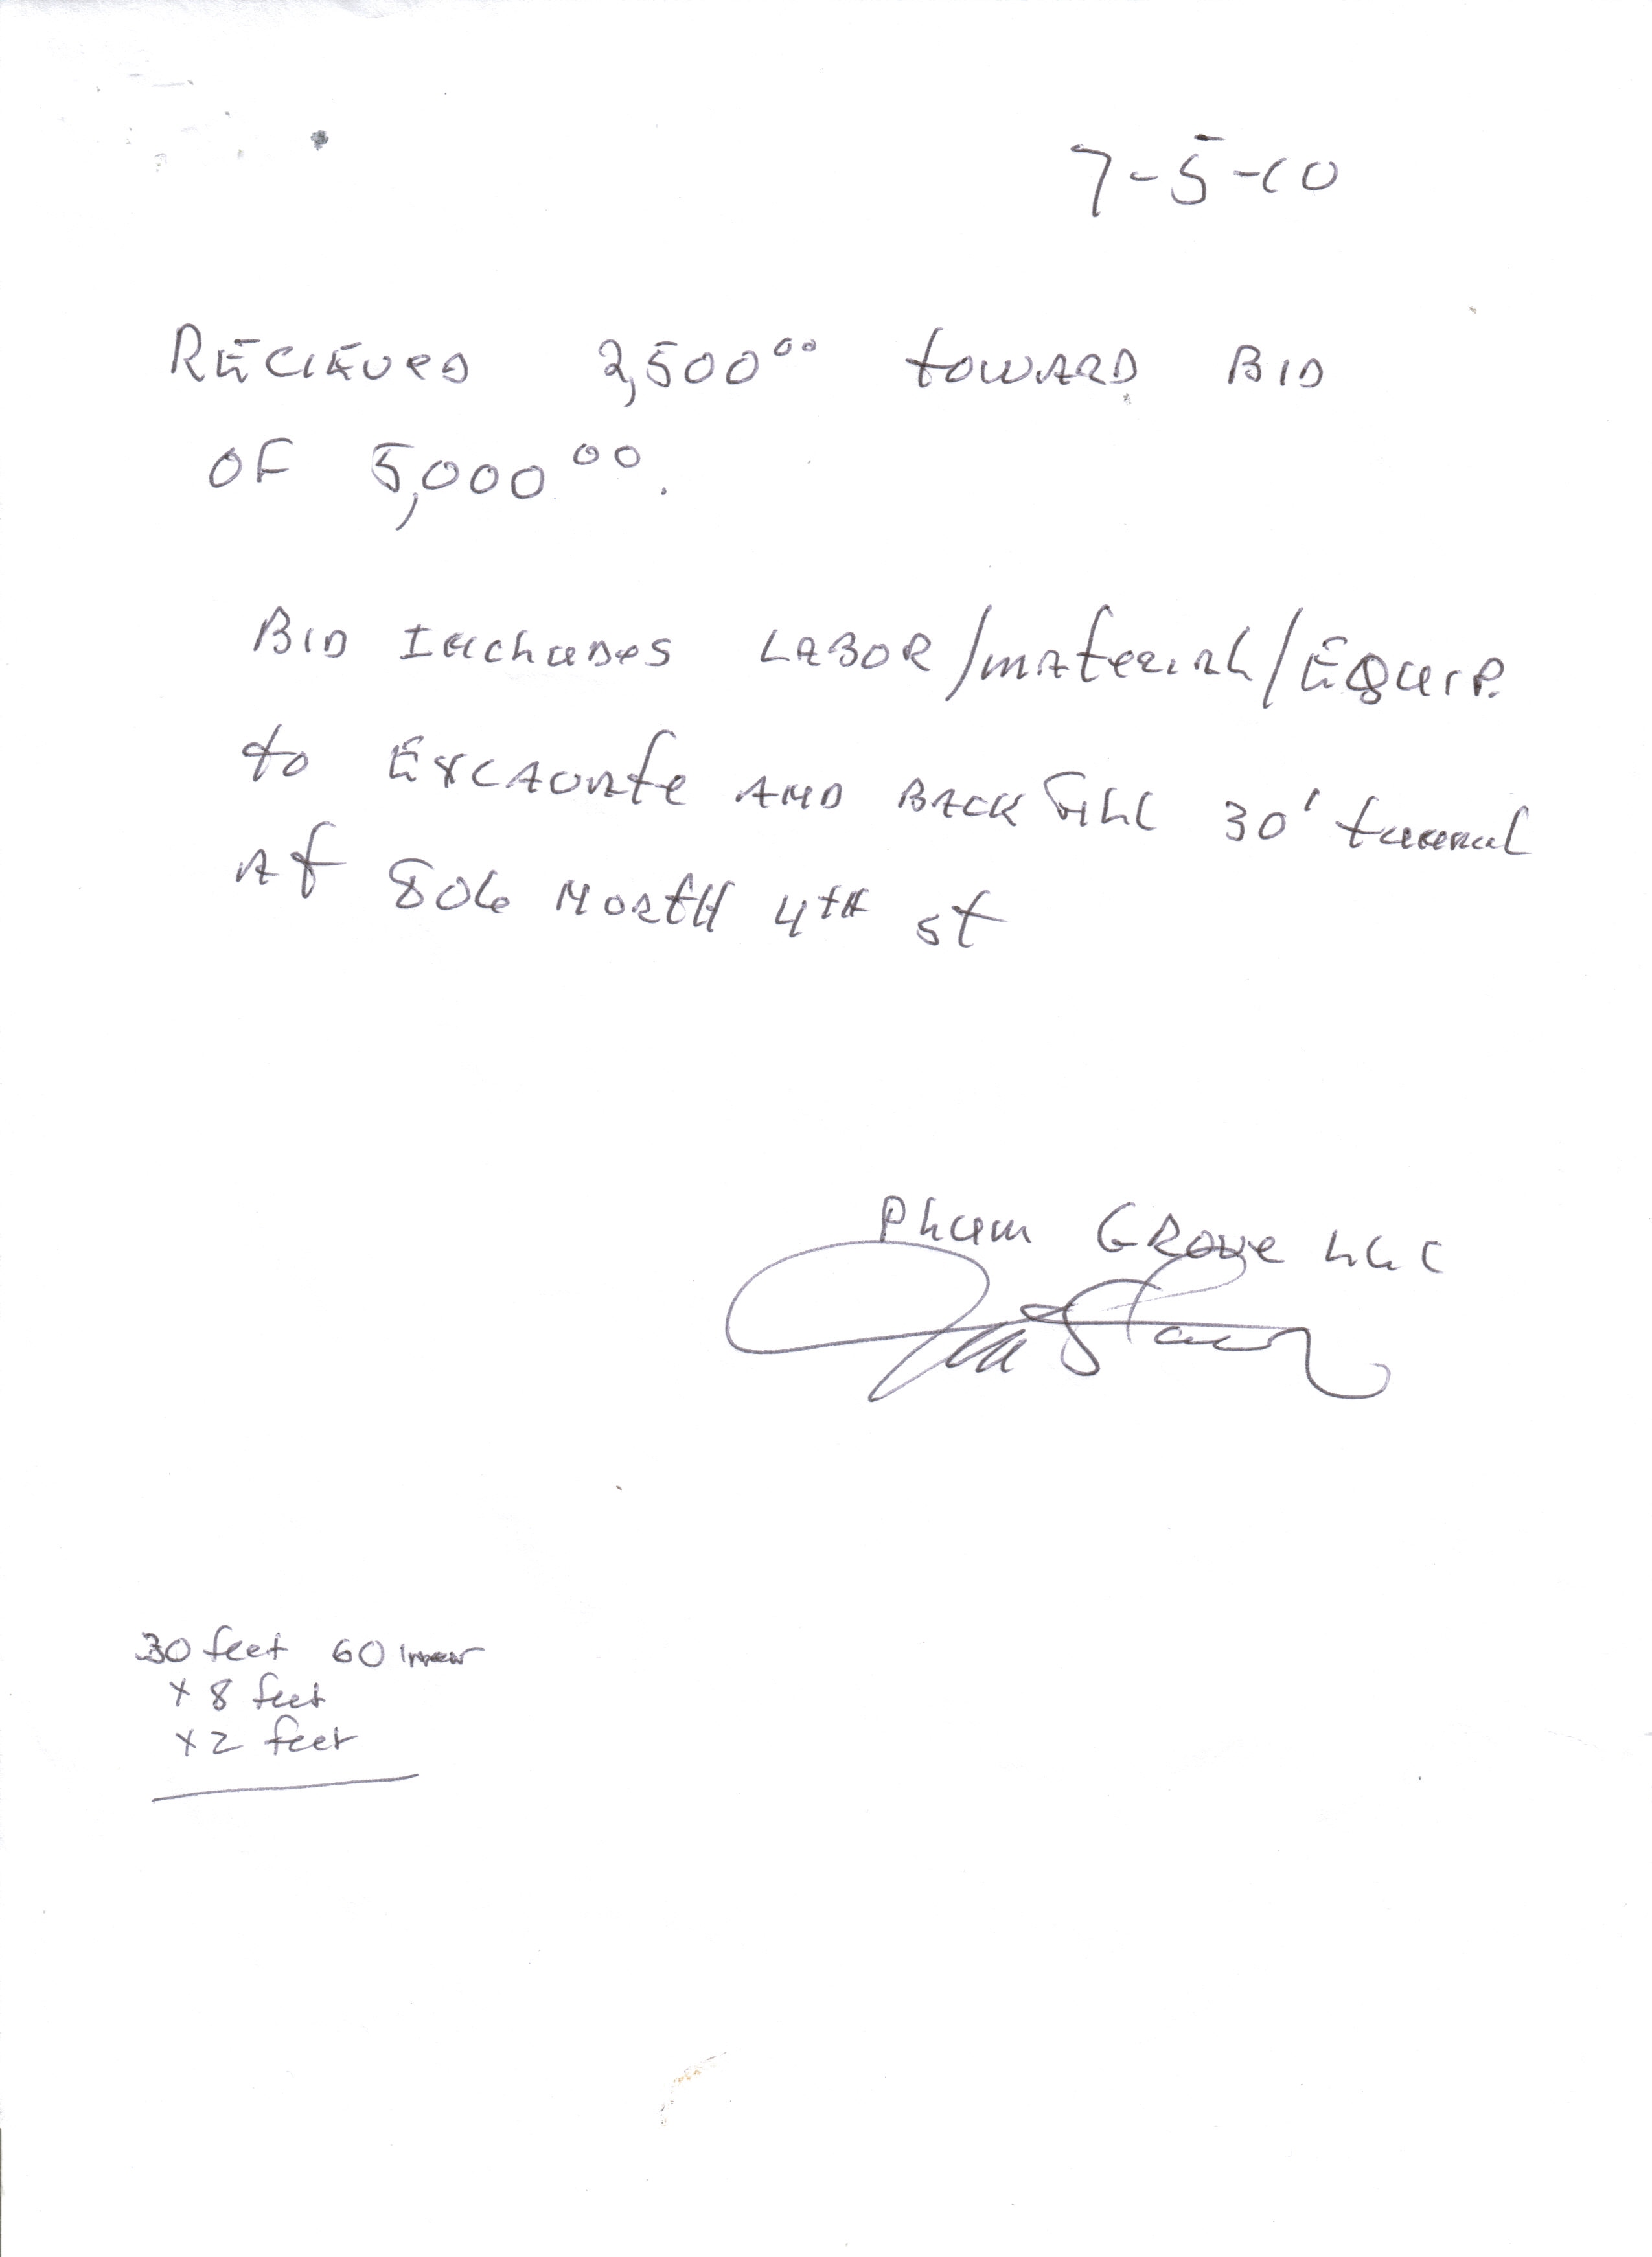 7-5-10
RECIEVED 2,500⁰⁰ toward BID
OF 5,000⁰⁰.
BID INCLUDES LABOR/material/EQUIP.
to EXCAVATE AND BACK FILL 30' tunnel
At 806 NORTH 4TH st
Plum GROVE LLC
30 feet 60
x 8 feet
x 2 feet